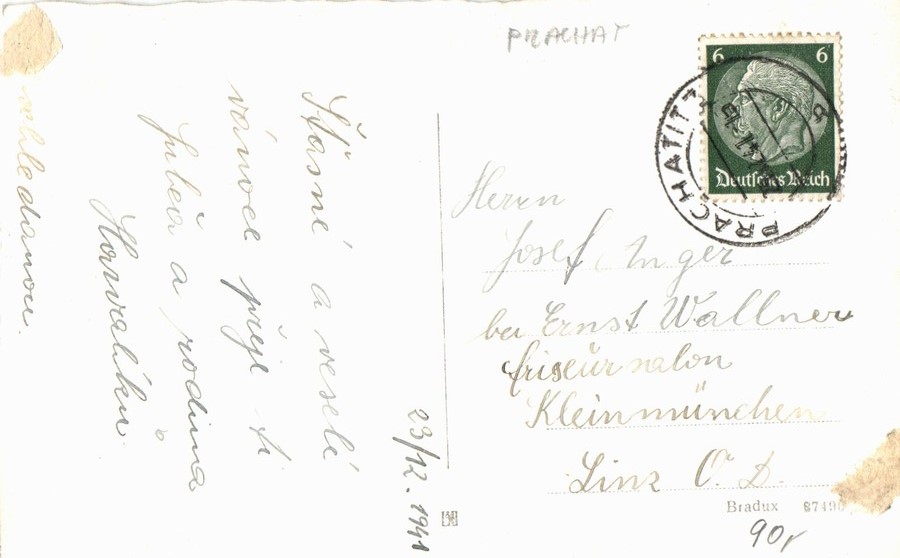 PRACHAT
6 6
Deutsches Reich
PRACHATITZ
Šťasné a veselé
vánoce přeje ti
Luba a rodina
Havralíků
23/12. 1941
Herrn
Josef Unger
bei Ernst Wallner
friseursalon
Kleinmünchen
Linz O. D.
Bradux 8749
90,-